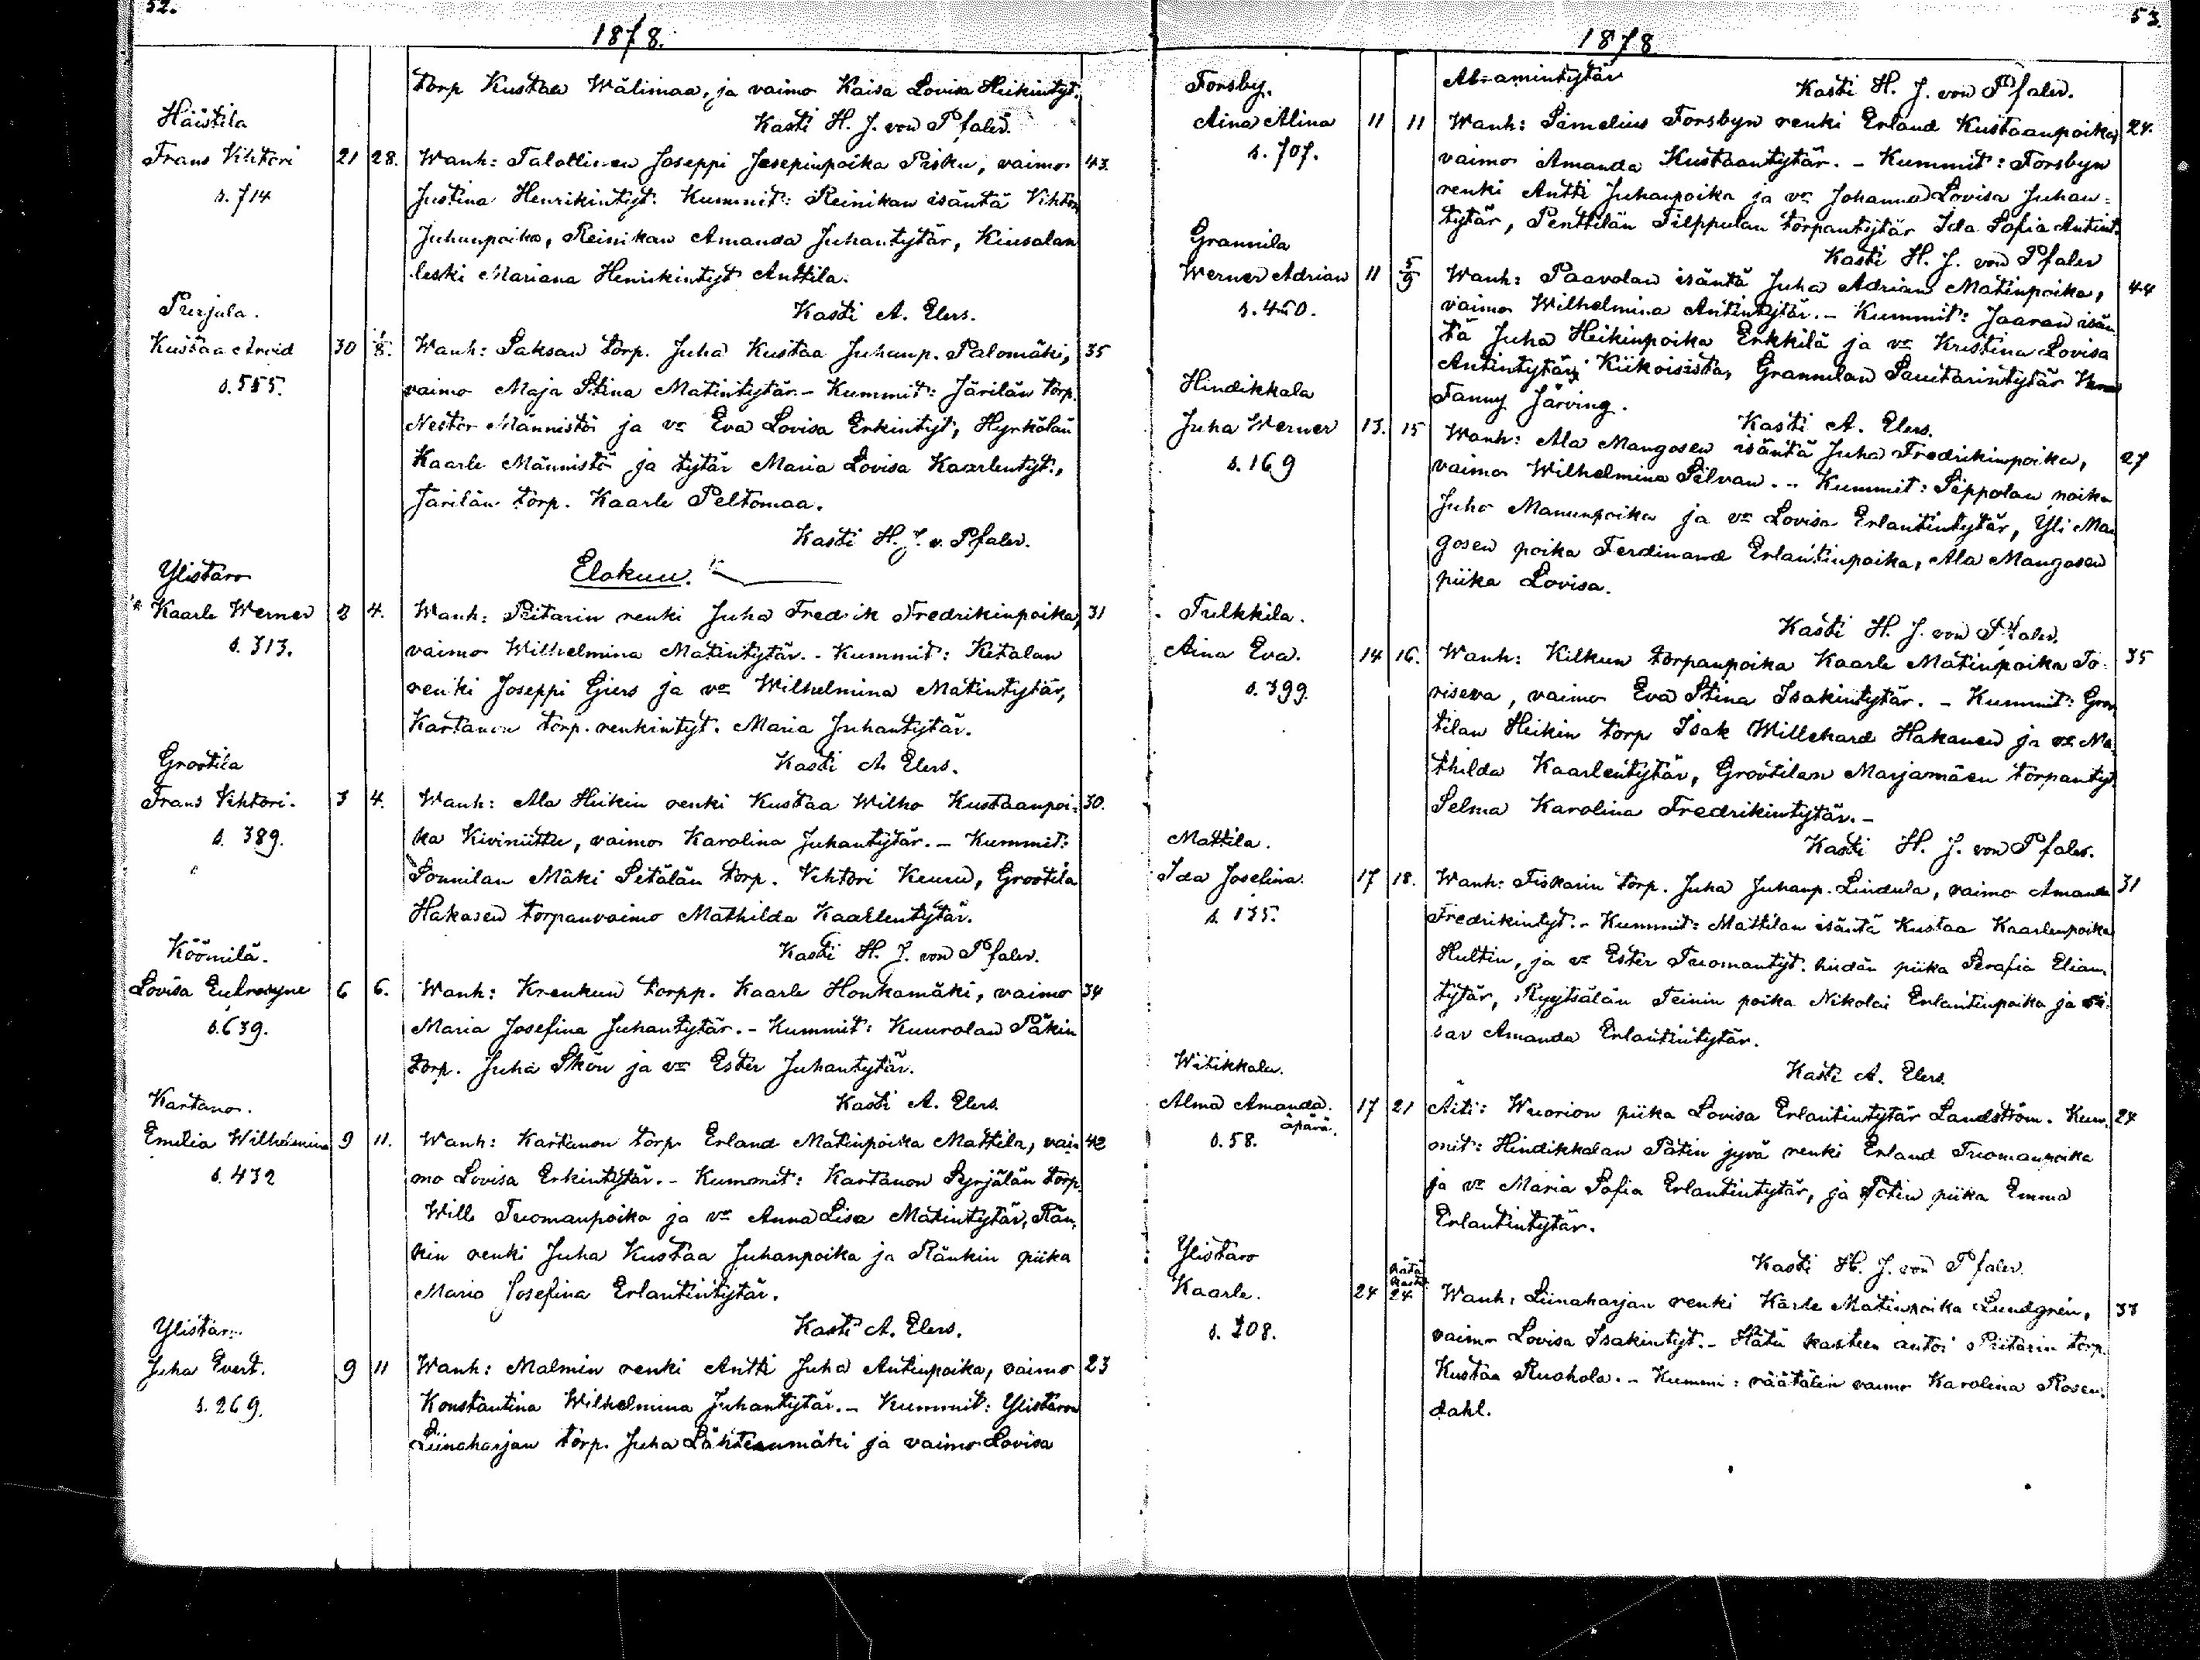 52.
1878.
torp Kustaa Wälimaa, ja vaimo Kaisa Lovisa Heikintyt.
Kasti H. J. von Pfaler.
Häistilä
Frans Vihtori 21 28. Wanh: Talollinen Joseppi Josepinpoika Pisku, vaimo 43.
s. 714 Justina Henrikintyt. Kummit: Reinikan isäntä Vihtori
Juhanpoika, Reinikan Amanda Juhantytär, Kiusalan
leski Mariana Henrikintyt Anttila.
Kasti A. Elers.
Purjala.
Kustaa Arvid 30 1/8. Wanh: Saksan torp. Juha Kustaa Juhanp. Palomäki, 35
s. 555. vaimo Maja Stina Matintytär. - Kummit: Järilän torp.
Nestor Männistö ja vo Eva Lovisa Erkintyt, Hyrkölän
Kaarle Männistö ja tytär Maria Lovisa Kaarlentyt.,
Järilän torp. Kaarle Peltomaa.
Kasti H. J. v. Pfaler.
Elokuu.
Ylistaro
Kaarle Werner 2 4. Wanh: Pietarin renki Juha Fredrik Fredrikinpoika, 31
s. 313. vaimo Wilhelmina Matintytär. - Kummit: Ketalan
renki Joseppi Giers ja vo Wilhelmina Matintytär,
Kartanon torp. renkintyt. Maria Juhantytär.
Kasti A. Elers.
Grootila
Frans Vihtori. 3 4. Wanh: Ala Heikin renki Kustaa Wilho Kustaanpoi- 30.
s. 389. ka Kiviniittu, vaimo Karolina Juhantytär. - Kummit:
Sonnilan Mäki Setälän torp. Vihtori Keuru, Grootila
Hakasen torpanvaimo Mathilda Kaarlentytär.
Kasti H. J. von Pfaler.
Köömilä.
Lovisa Eufrosyne 6 6. Wanh: Krenkun torpp. Kaarle Honkamäki, vaimo 34
s. 639. Maria Josefina Juhantytär. - Kummit: Kuurolan Päkin
torp. Juha Skön ja vo Ester Juhantytär.
Kasti A. Elers.
Kartano.
Emilia Wilhelmina 9 11. Wanh: Kartanon torp. Erland Matinpoika Mattila, vai- 42
s. 432 mo Lovisa Erkintytär. - Kummit: Kartanon Syrjälän torp.
Wille Tuomanpoika ja vo Anna Lisa Matintytär, Rän-
kin renki Juha Kustaa Juhanpoika ja Ränkin piika
Maria Josefina Erlantintytär.
Kasti A. Elers.
Ylistaro
Juha Evert. 9 11 Wanh: Malmin renki Antti Juha Antinpoika, vaimo 23
s. 269. Konstantina Wilhelmina Juhantytär. - Kummit: Ylistaron
Liinaharjan torp. Juha Lähteenmäki ja vaimo Lovisa
53.
1878
Abramintytär
Kasti H. J. von Pfaler.
Forsby.
Aina Alina 11 11 Wanh: Simelius Forsbyn renki Erland Kustaanpoika, 24.
s. 707. vaimo Amanda Kustaantytär. - Kummit: Forsbyn
renki Antti Juhanpoika ja vo Johanna Lovisa Juhan-
tytär, Penttilän Tilppulan torpantytär Ida Sofia Antint.
Kasti H. J. von Pfaler
Grannila
Werner Adrian 11 5/9 Wanh: Paavolan isäntä Juha Adrian Matinpoika, 44
s. 450. vaimo Wilhelmina Antintytär. - Kummit: Jaaran isän-
tä Juha Heikinpoika Erkkilä ja vo Kristina Lovisa
Antintytär Kiikoisista, Grannilan
Fanny Järving.
Kasti A. Elers.
Hindikkala
Juha Werner 13. 15 Wanh: Ala Mangosen isäntä Juha Fredrikinpoika, 27
s. 169 vaimo Wilhelmina Silvan. - Kummit: Sippolan poika
Juho Manunpoika ja vo Lovisa Erlantintytär, Yli Man
gosen poika Ferdinand Erlantinpoika, Ala Mangosen
piika Lovisa.
Kasti H. J. von Pfaler.
Tulkkila.
Aina Eva. 14 16. Wanh: Kilkun torpanpoika Kaarle Matinpoika To- 35
s. 399. riseva, vaimo Eva Stina Isakintytär. - Kummit: Groo
tilan Heikin torp Isak Willehard Hakanen ja vo Ma-
thilda Kaarlentytär, Grootilan Marjamäen torpantyt
Selma Karolina Fredrikintytär. -
Kasti H. J. von Pfaler.
Mattila.
Ida Josefina. 17 18. Wanh: Fiskarin torp. Juha Juhanp. Lindula, vaimo Amanda 31
s. 135. Fredrikintyt. - Kummit: Mattilan isäntä Kustaa Kaarlenpoika
Hultin, ja vo Ester Tuomantyt. heidän piika Serafia Elian-
tytär, Ryytsälän Teinin poika Nikolai Erlantinpoika ja si-
sar Amanda Erlantintytär.
Kasti A. Elers.
Witikkala.
Alma Amanda. 17 21 Äiti: Wuorion piika Lovisa Erlantintytär Landström. Kum- 24
äpärä.
s. 58. mit: Hindikkalan Pätin jyvä renki Erland Tuomanpoika
ja vo Maria Sofia Erlantintytär, ja Potin piika Emma
Erlantintytär.
Kasti H. J. von Pfaler.
Ylistaro
Kaarle. 24 Hätä kaste 24 Wanh: Liinaharjan renki Kaarle Matinpoika Lundgrén, 33
s. 208. vaimo Lovisa Isakintyt. - Hätä kasteen antoi Pietarin torp.
Kustaa Ruohola. - Kummi: räätälin vaimo Karolina Rosen-
dahl.